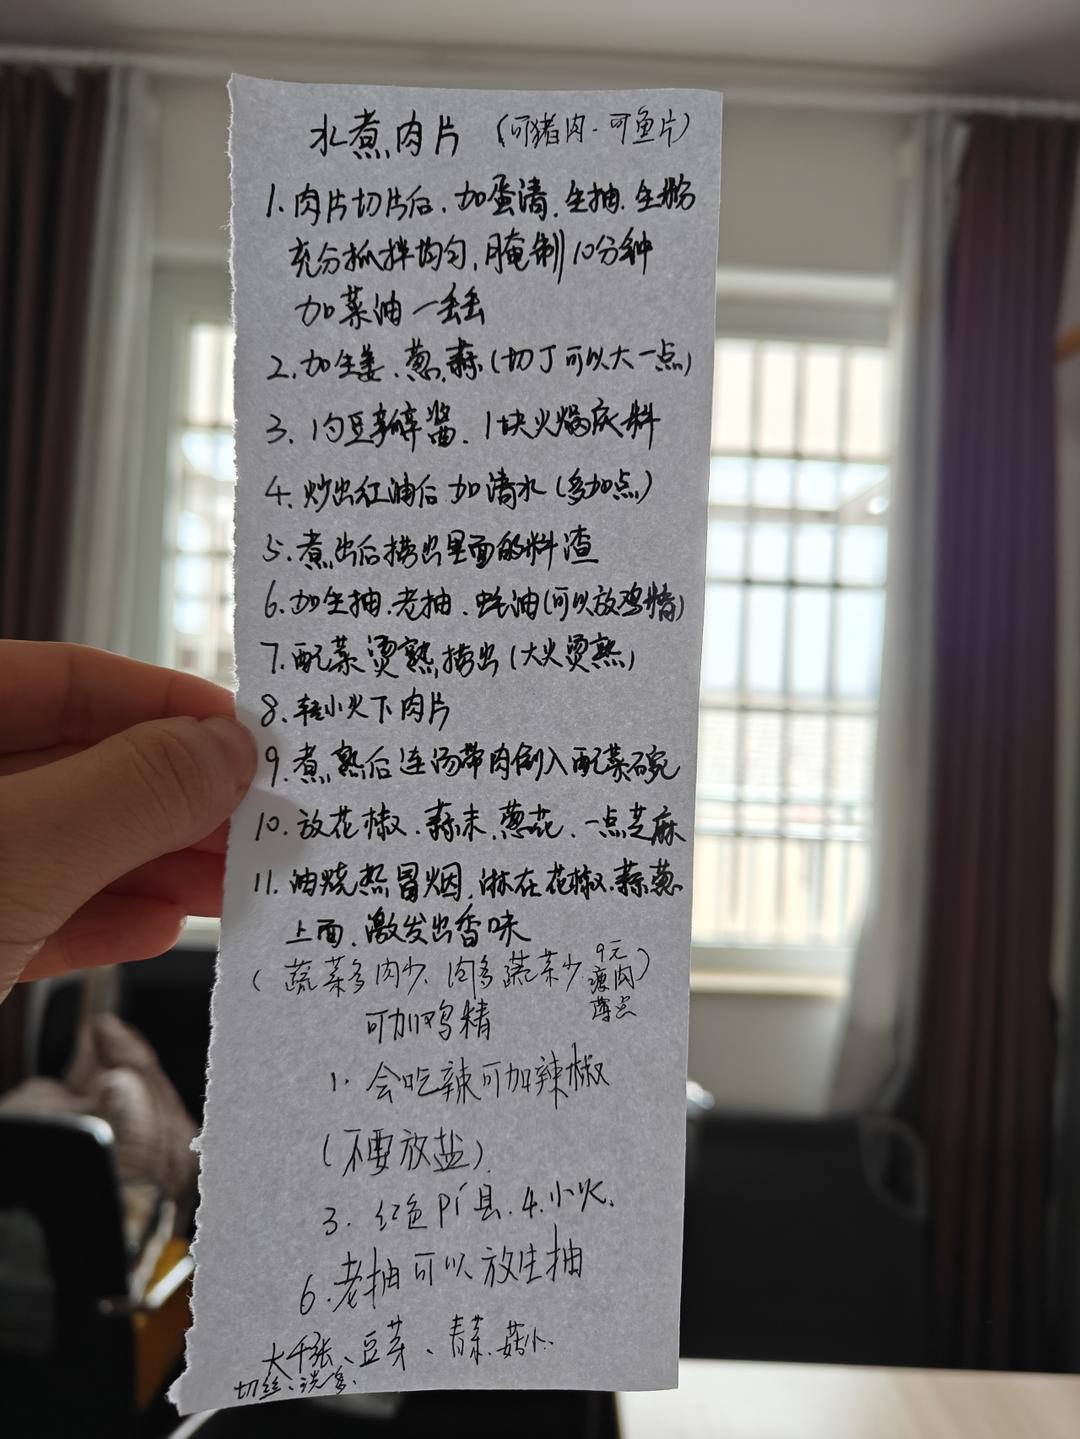 水煮肉片 (可猪肉.可鱼片)
1.肉片切片后.加蛋清.生抽.生粉
充分抓拌均匀,腌制10分钟
加菜油一丢丢
2.加生姜.葱.蒜(切丁可以大一点)
3.1勺豆瓣酱.1块火锅底料
4.炒出红油后加清水(多加点)
5.煮出后捞出里面的料渣
6.加生抽.老抽.蚝油(可以放鸡精)
7.配菜烫熟捞出(大火烫熟)
8.转小火下肉片
9.煮熟后连汤带肉倒入配菜碗
10.放花椒.蒜末.葱花.一点芝麻
11.油烧热冒烟,淋在花椒.蒜葱
上面.激发出香味
(蔬菜多肉少.肉多蔬菜少 9元
瘦肉
薄点)
可加鸡精
1.会吃辣可加辣椒
(不要放盐).
3.红色Pí县.4.小火.
6.老抽可以放生抽
大千张、豆芽、青菜.菇
切丝、洗